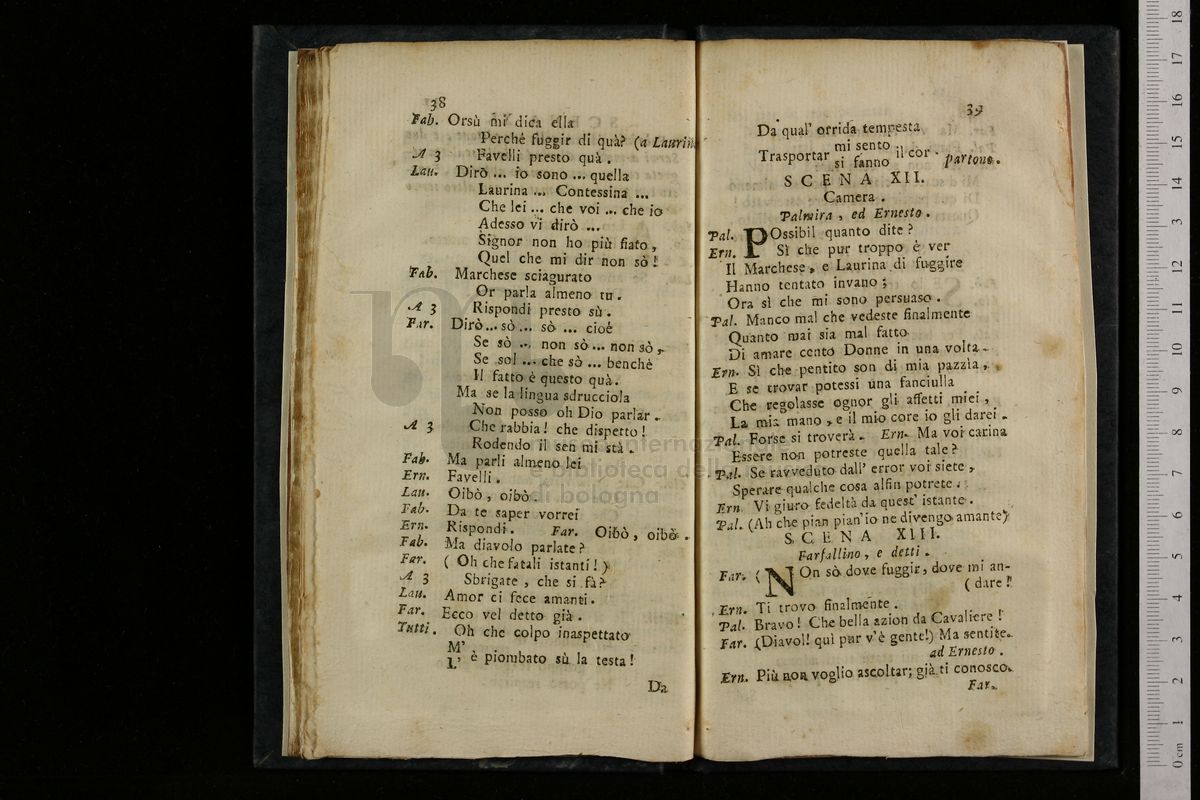 38
Fab. Orsù mi dica ella
Perchè fuggir di quà? (a Laurin.
A 3 Favelli presto quà.
Lau. Dirò ... io sono ... quella
Laurina ... Contessina ...
Che lei ... che voi ... che io
Adesso vi dirò ...
Signor non ho più fiato,
Quel che mi dir non sò!
Fab. Marchese sciagurato
Or parla almeno tu.
A 3 Rispondi presto sù.
Far. Dirò... sò ... sò ... cioè
Se sò ... non sò ... non sò,
Se sol ... che sò ... benchè
Il fatto è questo quà.
Ma se la lingua sdrucciola
Non posso oh Dio parlar.
A 3 Che rabbia! che dispetto!
Rodendo il sen mi stà.
Fab. Ma parli almeno lei
Ern. Favelli.
Lau. Oibò, oibò.
Fab. Da te saper vorrei
Ern. Rispondi. Far. Oibò, oibò.
Fab. Ma diavolo parlate?
Far. (Oh che fatali istanti!)
A 3 Sbrigate, che si fà?
Lau. Amor ci fece amanti.
Far. Ecco vel detto già.
Tutti. Oh che colpo inaspettato
M'
L' è piombato sù la testa!
Da
39
Da qual' orrida tempesta
Trasportar mi sento il cor. partono.
si fanno
SCENA XII.
Camera.
Palmira, ed Ernesto.
Pal. POssibil quanto dite?
Ern. Sì che pur troppo è ver
Il Marchese, e Laurina di fuggire
Hanno tentato invano;
Ora sì che mi sono persuaso.
Pal. Manco mal che vedeste finalmente
Quanto mai sia mal fatto
Di amare cento Donne in una volta.
Ern. Sì che pentito son di mia pazzìa,
E se trovar potessi una fanciulla
Che regolasse ognor gli affetti miei,
La mia mano, e il mio core io gli darei.
Pal. Forse si troverà. Ern. Ma voi carina
Essere non potreste quella tale?
Pal. Se ravveduto dall' error voi siete,
Sperare qualche cosa alfin potrete.
Ern. Vi giuro fedeltà da quest' istante.
Pal. (Ah che pian pian' io ne divengo amante)
SCENA XIII.
Farfallino, e detti.
Far. (NOn sò dove fuggir, dove mi an-
(dare!
Ern. Ti trovo finalmente.
Pal. Bravo! Che bella azion da Cavaliere!
Far. (Diavol! quì pur v'è gente!) Ma sentite.
ad Ernesto.
Ern. Più non voglio ascoltar; già ti conosco.
Far.
museo internazionale
e biblioteca della
di bologna
0 cm 1 2 3 4 5 6 7 8 9 10 11 12 13 14 15 16 17 18